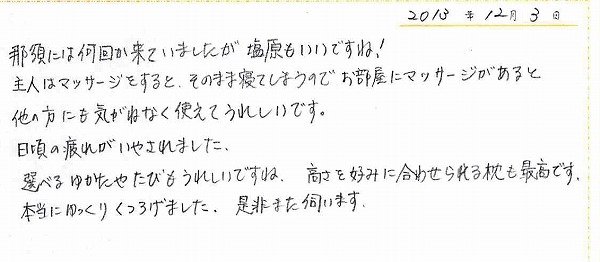 2013年12月3日
那須には何回か来ていましたが塩原もいいですね!
主人はマッサージをすると、そのまま寝てしまうのでお部屋にマッサージがあると
他の方にも気がねなく使えてうれしいです。
日頃の疲れがいやされました、
選べるゆかたやたびもうれしいですね、高さを好みに合わせられる枕も最高です、
本当にゆっくりくつろげました、是非また伺います、